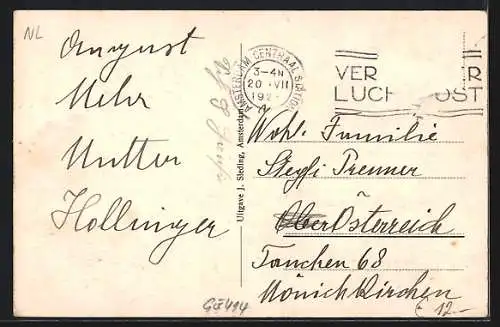 NL
August
Mehr
Mutter
Hollinger
Uitgave J. Steding, Amsterdam
AMSTERDAM CENTRAAL STATION
3-4N
20 VII
192
VER R
LUCH OST
Wohl. Familie
Steffi Prenner
Ober Österreich
Tauchen 68
Mönichkirchen
GÜ494
€ 12.-